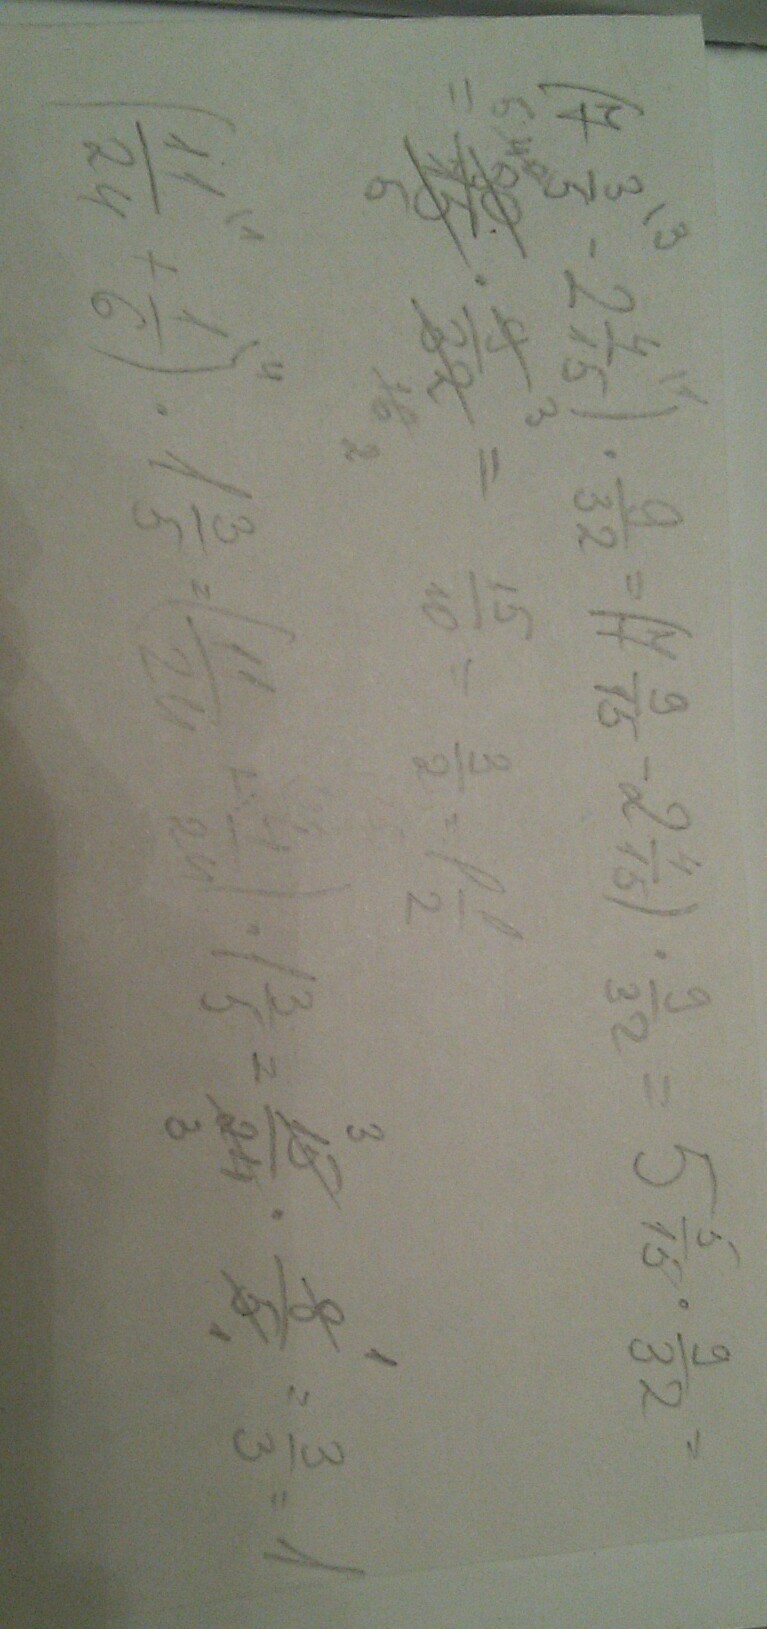 (7 3/5 \3 - 2 4/15 \1) · 9/32 = (7 9/15 - 2 4/15) · 9/32 = 5 5/15 · 9/32 =
= 80/15 · 9/32 = 15/10 = 3/2 = 1 1/2
(11/24 \1 + 1/6 \4) · 1 3/5 = (11/24 + 4/24) · 1 3/5 = 15/24 · 8/5 = 3/3 = 1